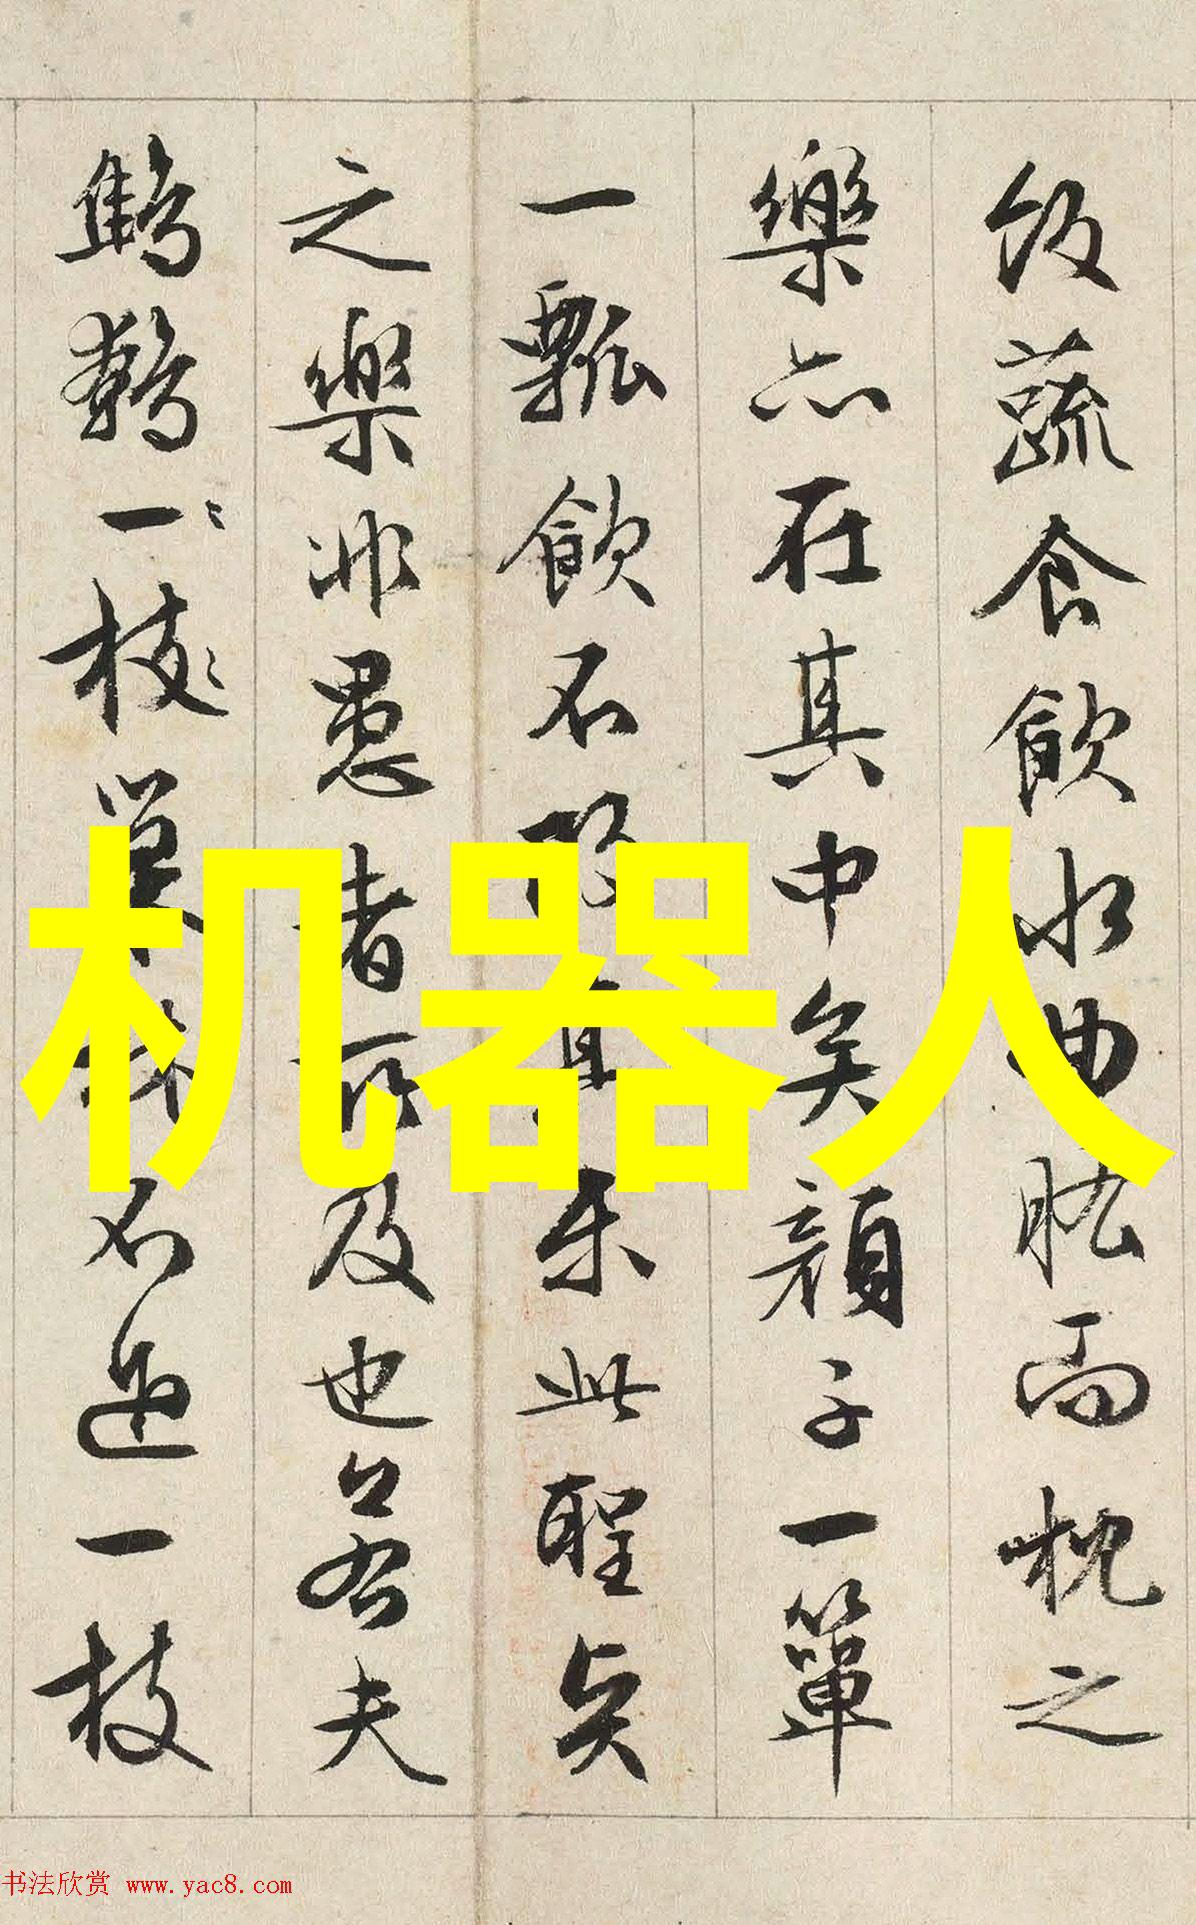 飯蔬食飲水曲肱而枕之
樂亦在其中矣顏子一簞
一瓢飲不改其樂此聖賢
之樂非愚者所及也若夫
鷦鷯一〻枝〻巢林不過一枝
机器人
书法欣赏 www.yac8.com